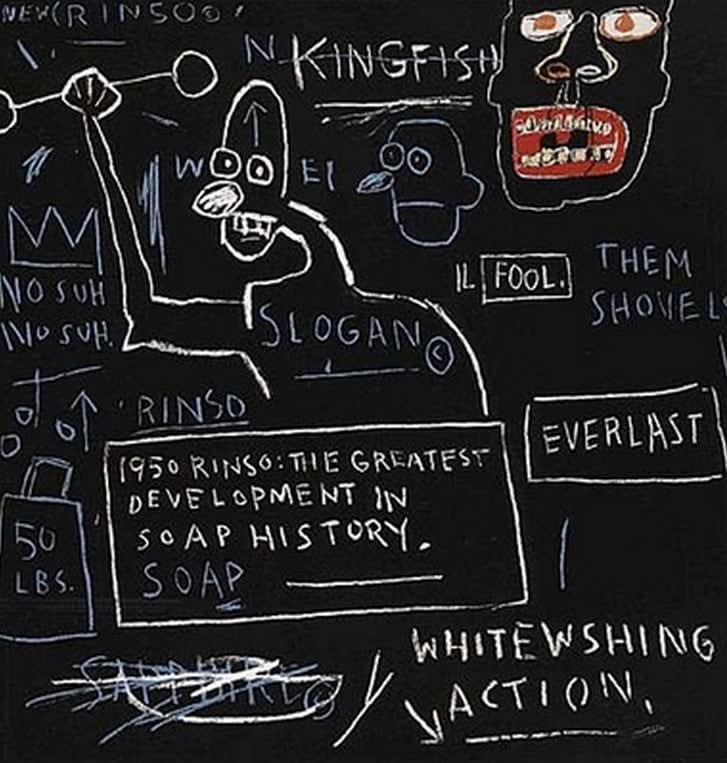 NEW (RINSO©
N KINGFISH
W EI
IL FOOL.
THEM
SHOVEL
NO SUH
NO SUH.
SLOGAN ©
RINSO
1950 RINSO: THE GREATEST
DEVELOPMENT IN
SOAP HISTORY.
SOAP
EVERLAST
50
LBS.
SAPPHIRE ©
WHITEWSHING
ACTION.